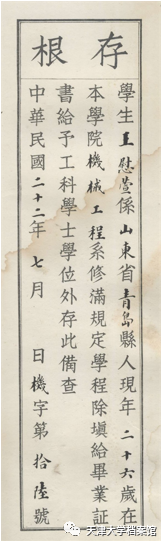 存根
學生王慰萱係山東省青島縣人現年二十六歲在
本學院機械工程系修滿規定學程除塡給畢業証
書給予工科學士學位外存此備查
中華民國二十二年七月 日機字第拾陸號
天津大学档案馆